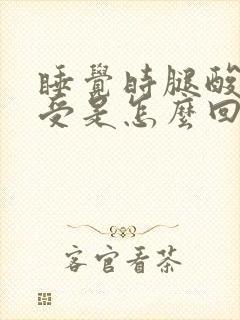 睡覺時腿酸
受是怎麼回
客官看茶